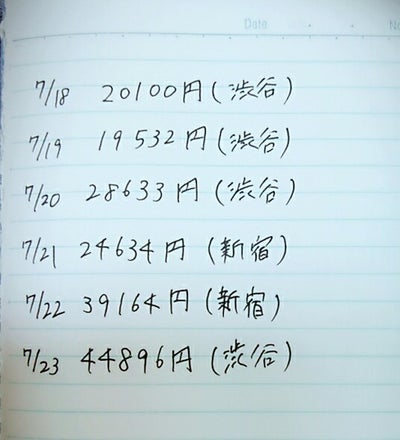 Date
No
7/18 20100円(渋谷)
7/19 19532円(渋谷)
7/20 28633円(渋谷)
7/21 24634円(新宿)
7/22 39164円(新宿)
7/23 44896円(渋谷)